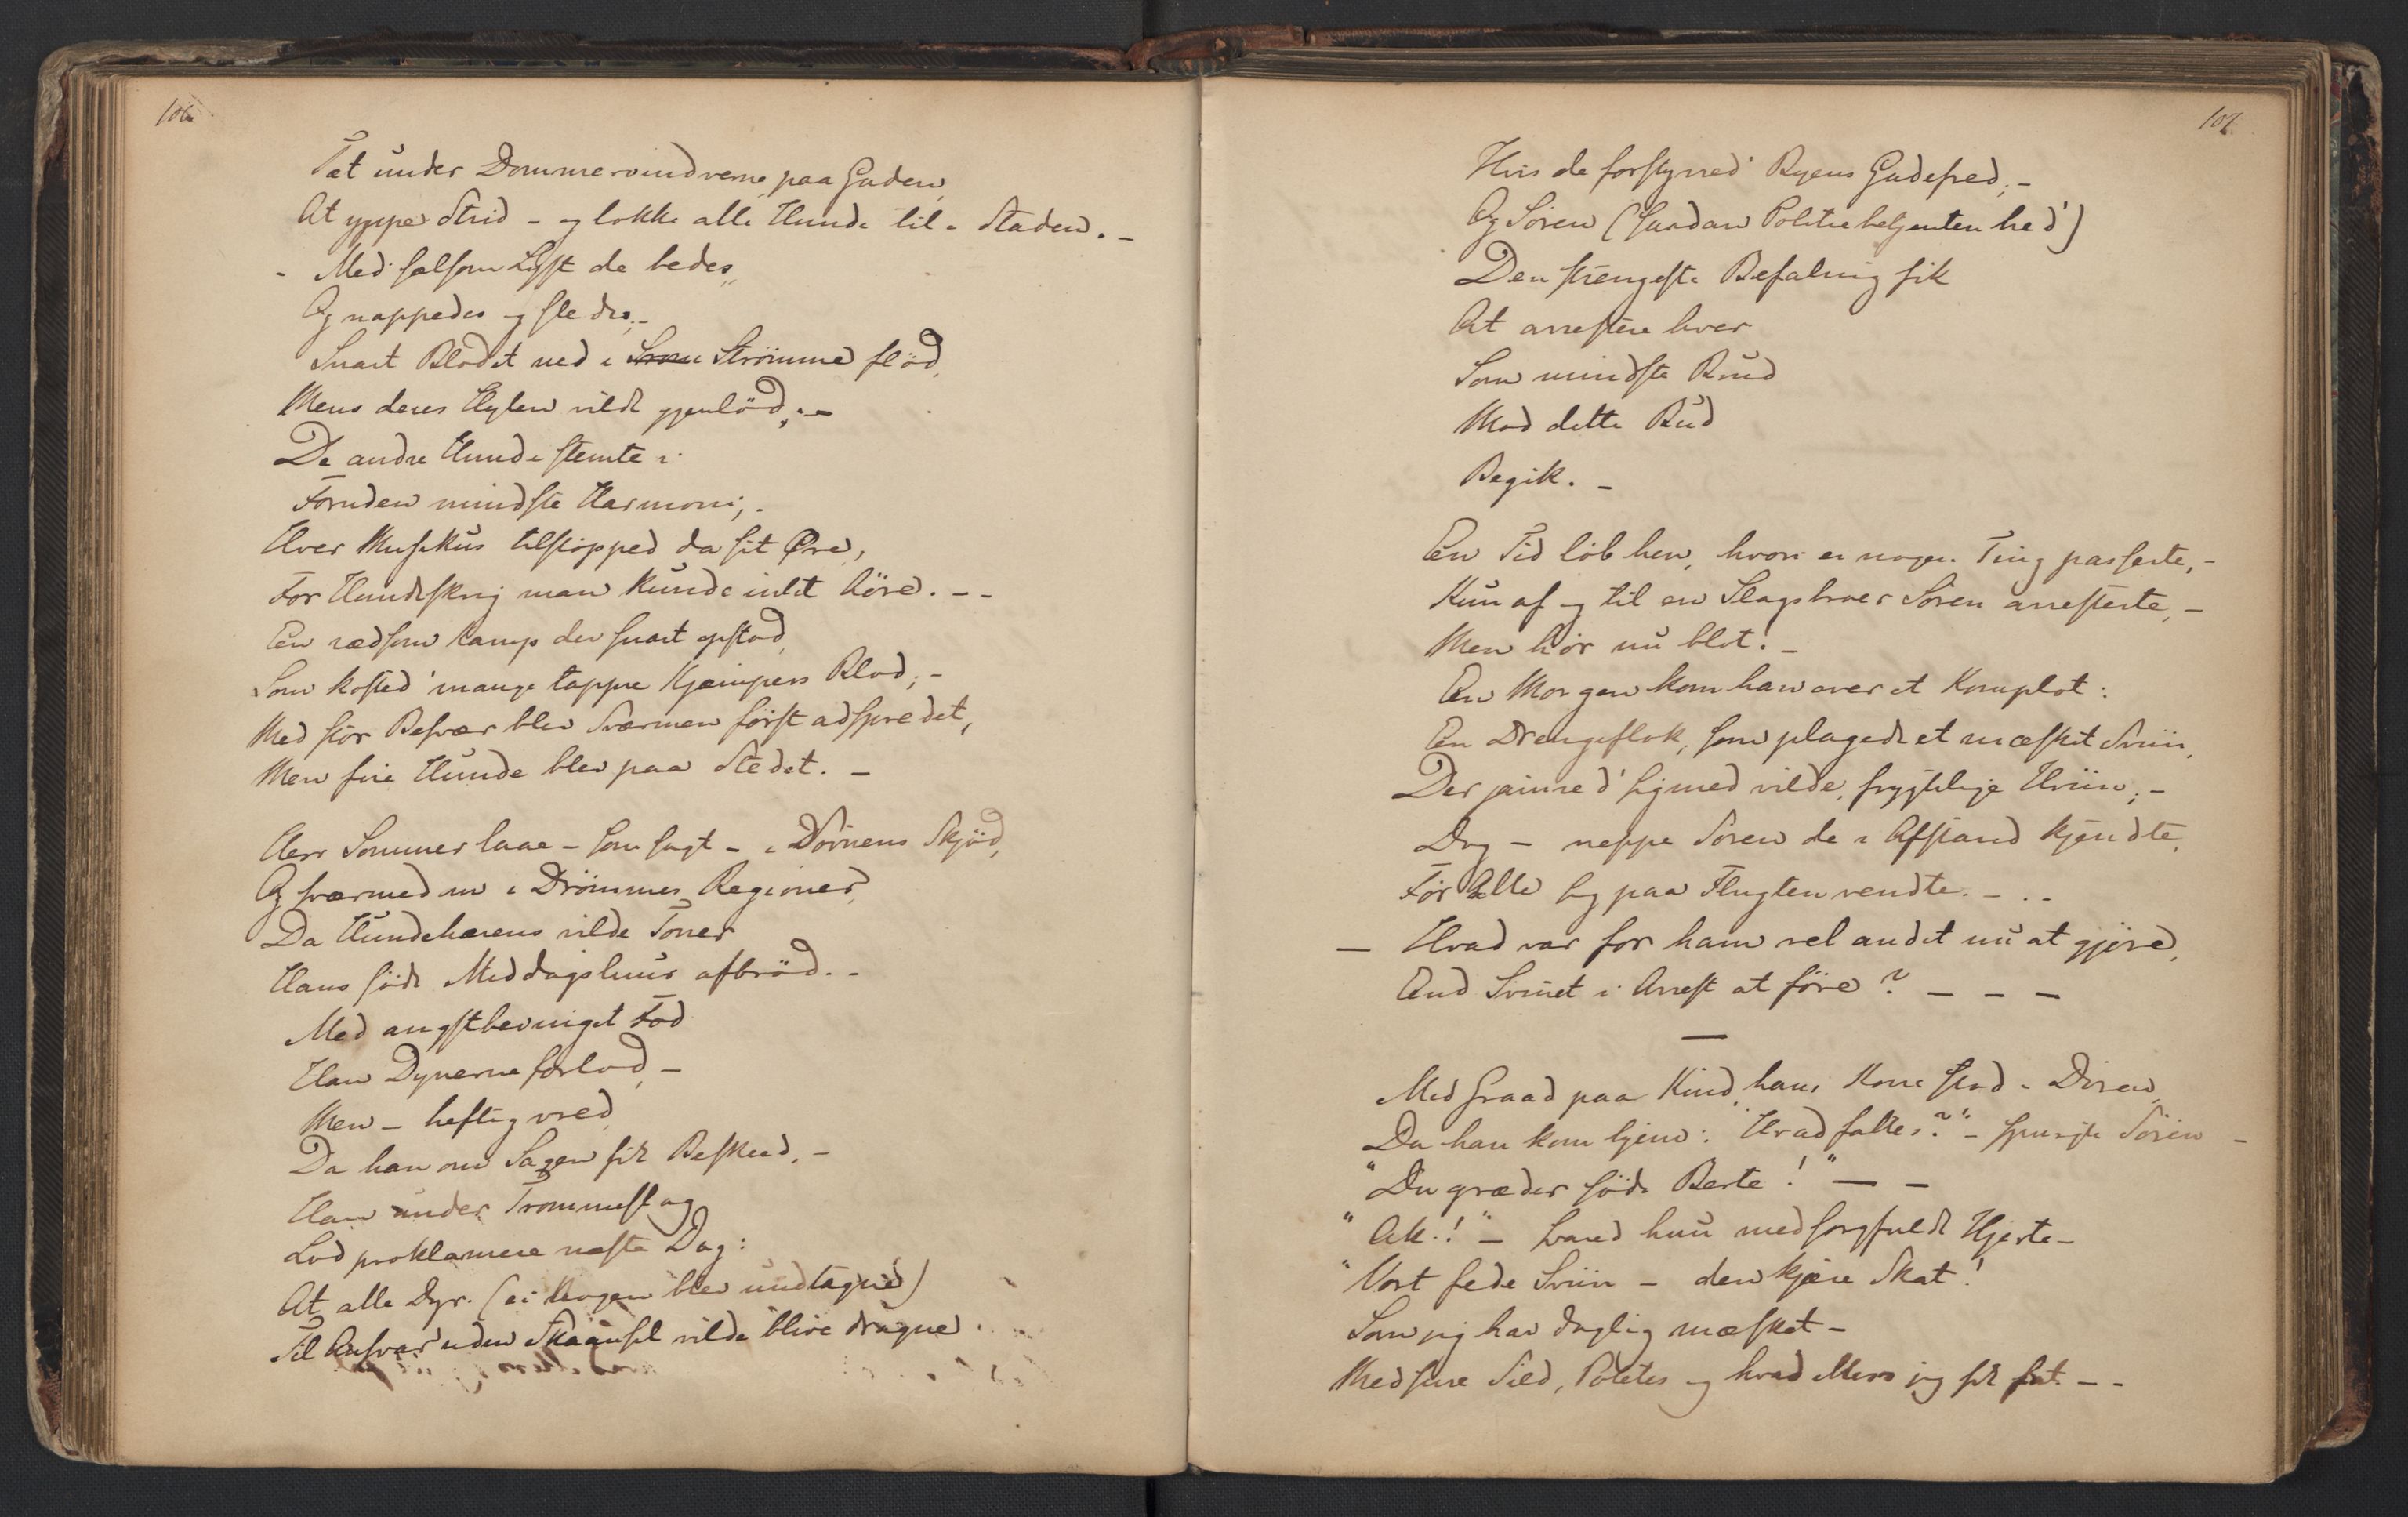 106.
Tæt under Dommervinduerne paa Gaden,
At yppe Strid – og lokke alle Hunde til i Staden. –
– Med sælsom Lyst de bedes,
Og nappedes og sledes; –
Snart Blodet ned i Strømme flød,
Mens deres Hylen vildt gjenlød; –
De andre Hunde stemte i
Foruden mindste Harmoni; –
Hver Musikus tilstopped da sit Øre,
For Hundeskrig man kunde intet høre. – –
En rædsom Kamp der snart opstod,
Som kosted' mange tappre Kjæmpers Blod; –
Med stor Besvær blev Sværmen først adspredet,
Men fire Hunde blev paa Stedet. –
Herr Sommer laae – som sagt – i Søvnens Skjød,
Og sværmed' om i Drømmes Regioner,
Da Hundehærens vilde Toner
Hans søde Middagsluur afbrød. –
Med angstbevinget Fod
Han Dynerne forlod, –
Men – heftig vred,
Da han om Sagen fik Beskeed, –
Han under Trommeslag
Lod proklamere næste Dag:
At alle Dyr (ei Nogen blev undtagne)
Til Ansvar uden Skaansel vilde blive dragne.
107.
Hvis de forstyrred' Byens Gadefred; –
Og Søren (saadan Politiebetjenten hed')
Den strengeste Befaling fik
At arrestere hver
Som mindste Brud
Mod dette Bud
Begik. –
En Tid løb hen, hvori ei nogen Ting passerte, –
Kun af og til en Slagsbroer Søren arresterte, –
Men hør nu blot! –
En Morgen kom han over et Komplot:
En Drengeflok, som plagede et mæsket Sviin,
Der jamred' sig med vilde, frygtelige Hviin; –
Dog – neppe Søren de i Afstand kjendte,
Før Alle sig paa Flugten vendte. – . –
– Hvad var for ham vel andet nu at gjøre,
End Svinet i Arrest at føre? – – –
–
Med Graad paa Kind, hans Kone stod i Døren,
Da han kom hjem: "Hvad fattes?" – spurgte Søren –
"Du græder søde Berte!" – –
"Ak!" – svared hun med sorgfuldt Hjerte –
"Vort fede Sviin – den kjære Skat!
Som jeg har daglig mæsket –
Med sure Sild, Potetes og hvad Mere jeg fik fat – –